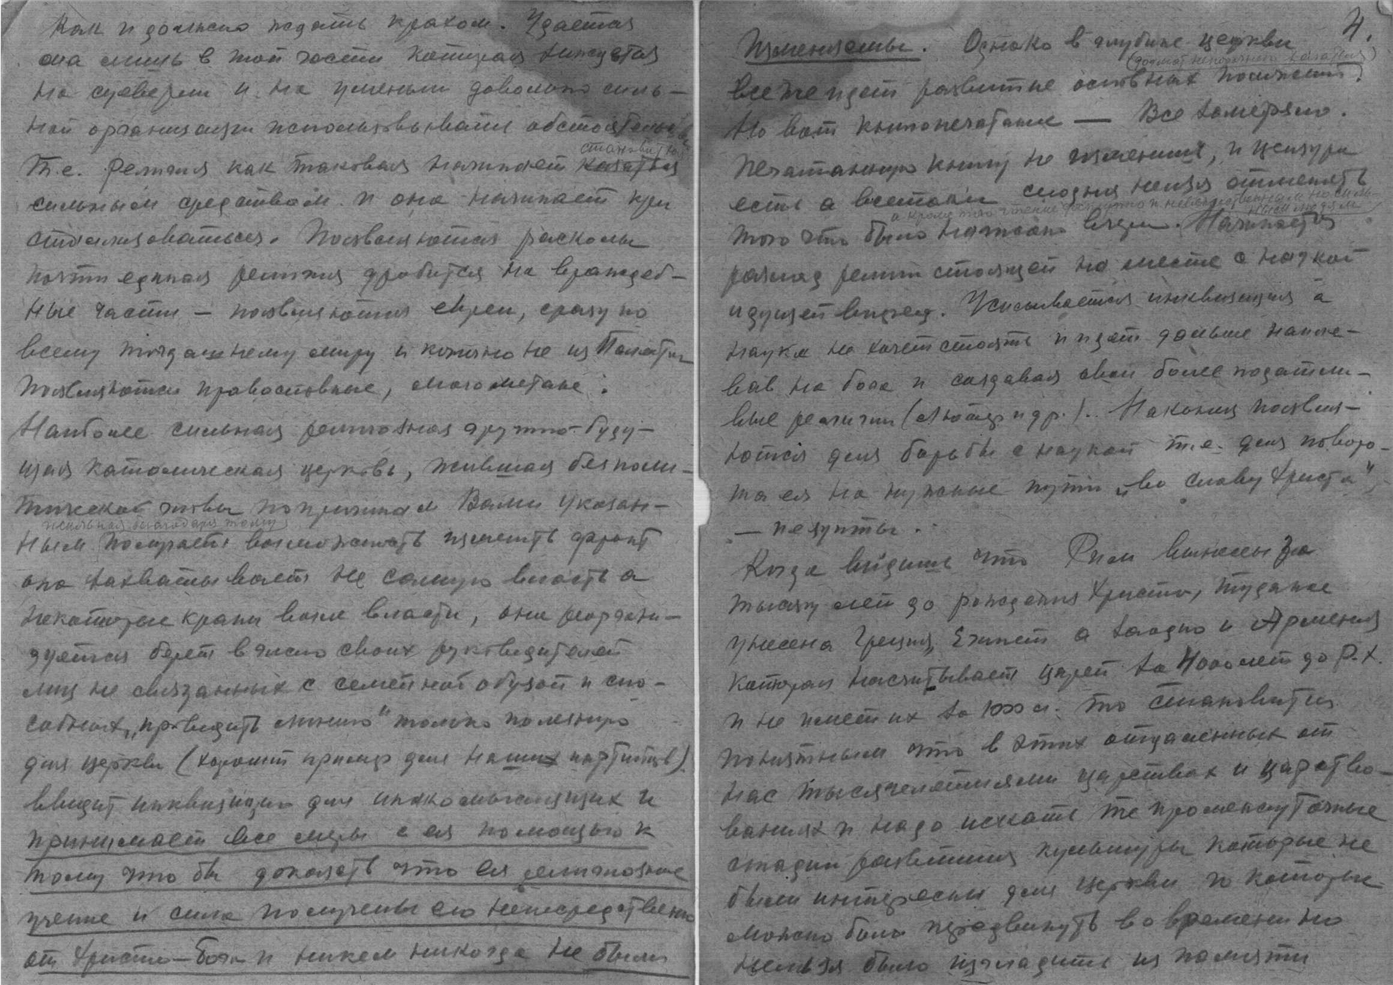 как и должно ждать крахом. Удается
она лишь в той части которая
на суеверии и на умении довольно силь-
ной организации использовывать обстоятельс
становиться
т.е. религия как таковая начинает казаться
сильным средством и она начинает кри
стализоваться. Появляются расколы
почти единая религия дробится на враждеб-
ные части — появляются евреи, сразу по
всему тогдашнему миру и конечно не из Палести
появляются православные, магометане.
Наиболее сильная религиозная группа буду-
щая католическая церковь, жившая без поли-
тической по причинам Вами указан-
благодаря тому
ным получает возможность изменить фронт
она захватывает не самую власть а
некоторые крани возле власти, она реоргани-
зуется берет в число своих руководителей
лиц не связанных с семейной обузой и спо-
собных „проводить линию" только полезную
для церкви (хороший пример для наших партийцев)
вводит инквизицию для инакомыслящих и
принимает все меры с ея помощью к
тому что бы доказать что ея религиозное
учение и сила получены ею непосредственно
от Христа—Бога и никем никогда не были
4.
изменяемы. Однако в глубине церкви
(догмат непорочного зачатия)
все же идет развитие основных положений
Но вот книгопечатание — Все замерзло.
Печатанную книгу не изменишь, и цензура
есть а всетаки сегодня нельзя отменять
а кроме того чтение доступно и
того что было написано вчера. Начинается
разлад религии стоящей на месте с наукой
идущей вперед. Усиливается инквизиция а
наука не хочет стоять и идет дальше напле-
вав на бога и создавая свои более податли-
вые религии (Лютер и др.). Наконец появля-
ются для борьбы с наукой т.е. для поворо-
та ея на нужные пути „во славу Христа"
— иезуиты.
Когда видишь что Рим вынесен за
тысячу лет до рождения Христа, туда же
унесена Греция, Египет а заодно и Армения
которая насчитывает царей за 4000 лет до Р.Х.
и не имеет их за 1000 л. то становится
понятным что в этих отдаленных от
нас тысячелетиями царствах и царство-
ваниях и надо искать те промежуточные
стадии развития культуры которые не
были интересны для церкви но которые
можно было передвинуть во времени но
нельзя было изгладить из памяти